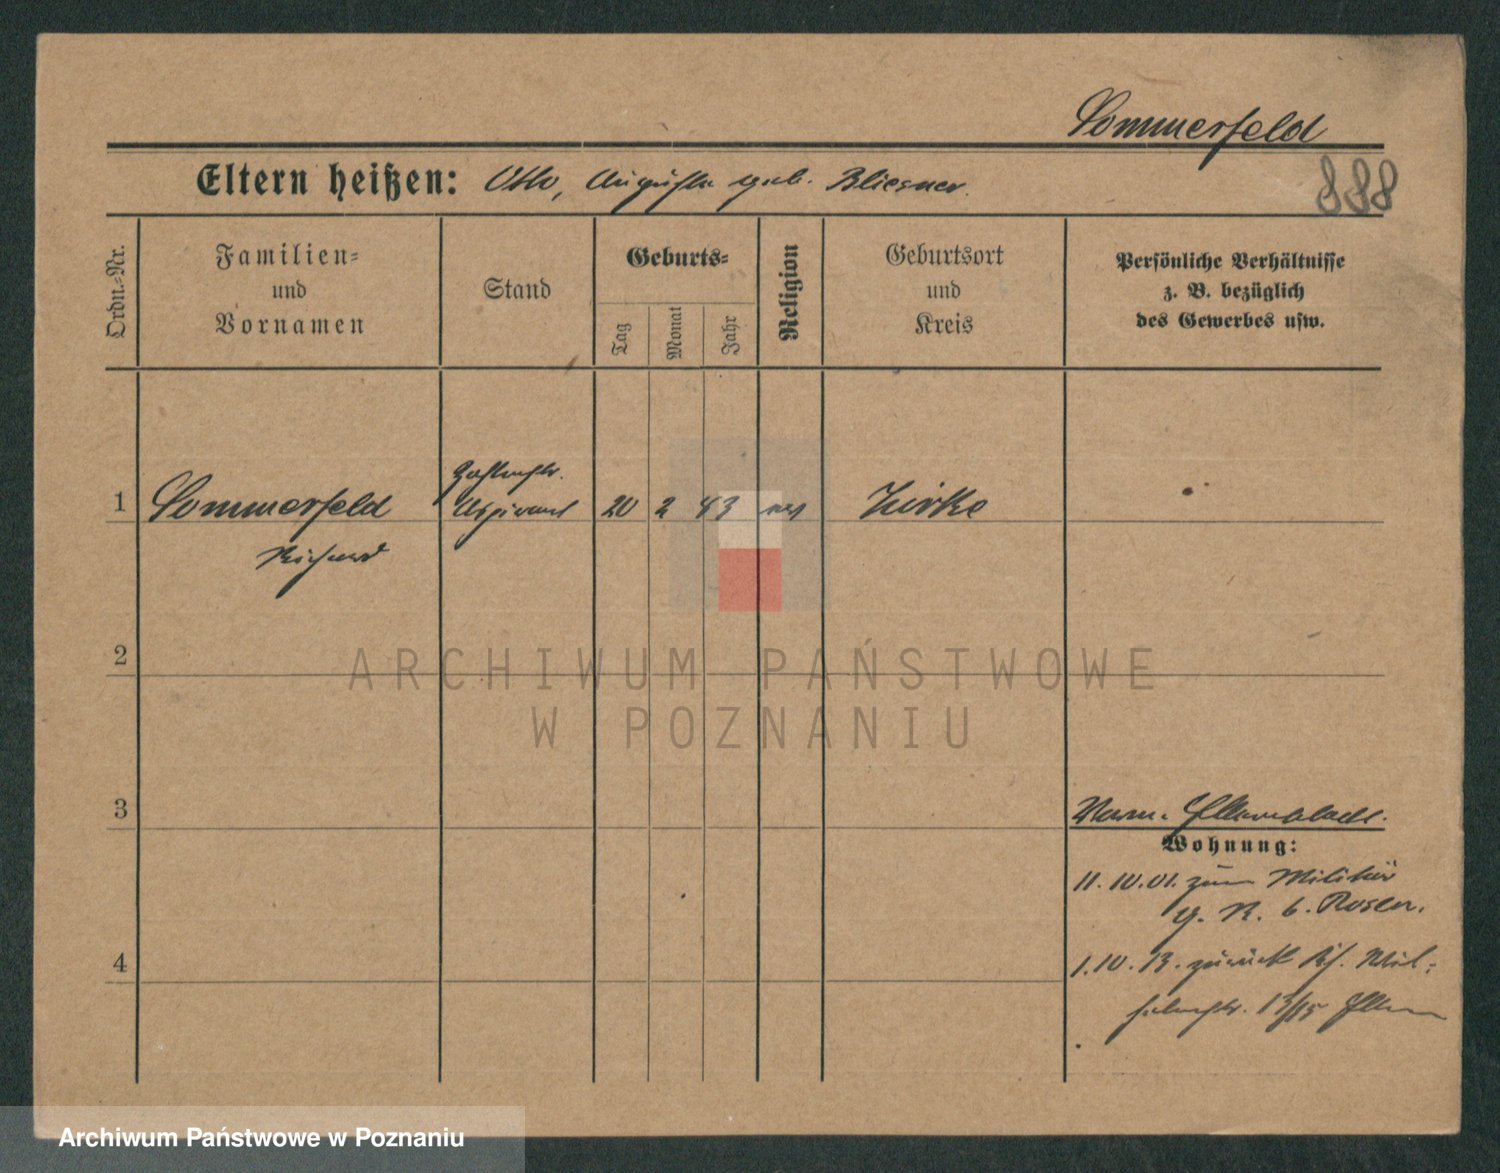 Sommerfeld
888
Eltern heißen: Otto, Auguste geb. Bliesner.
Ordn.-Nr.
Familien-
und
Vornamen
Stand
Geburts-
Tag
Monat
Jahr
Religion
Geburtsort
und
Kreis
Persönliche Verhältnisse
z. B. bezüglich
des Gewerbes usw.
1 Sommerfeld
Richard
Zahlmstr.
Aspirant
20 2 83
Zirke
2
3
4
Elternblatt.
Wohnung:
11.10.01. zum Militär
1.10.13. zurück Wil-
helmstr. 13/15 Eltern
ARCHIWUM PAŃSTWOWE
W POZNANIU
Archiwum Państwowe w Poznaniu